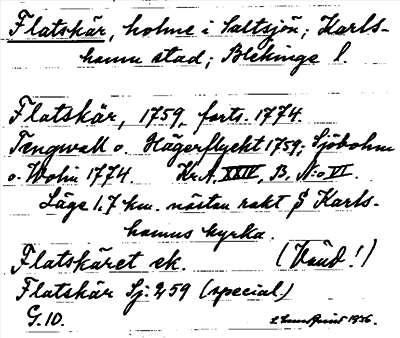 Flatskär, holme i Saltsjön; Karls-
hamn stad; Blekinge l.
Flatskär, 1759, forts. 1774.
Tengwall o. Hägerflycht 1759; Sjöbohm
o. Wohn 1774. Kr.A. XXIV, B, N:o VI.
Läge 1,7 km. nästan rakt S Karls-
hamns kyrka.
Flatskäret ek. (Vänd!)
Flatskär Sj: 259 (special)
G.10. 1936.